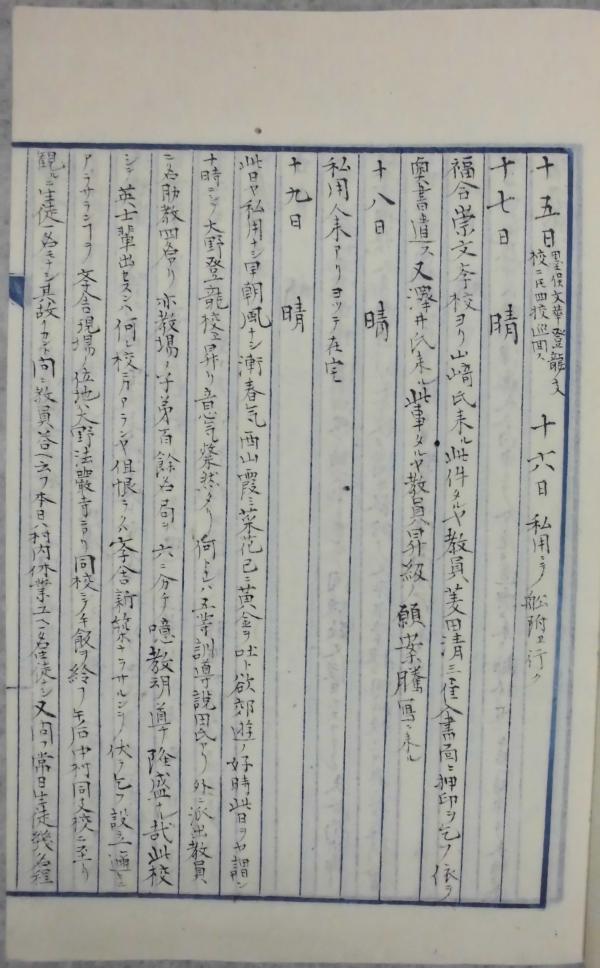 十五日 墨俣文華登龍文
校ニ氏四校巡回ス 十六日 私用ニテ船附ヱ行ク
十七日 晴
福合崇文学校ヨリ山﨑氏来ル此件タルヤ教員菱田清三進人書面ニ押印ヲ乞フ依テ
奥書遣ス又澤井氏来ル此事タルヤ教員昇級ノ願案騰寫ニ来ル
十八日 晴
私用人来アリヨツテ在宅
十九日 晴
此日ヤ私用ナシ早朝風ナシ漸春気西山霞ミ菜花已ニ黄金ヲ吐ト欲郊遊ノ好時此日ヲヤ謂ン
十時ニシテ大野登龍校ヱ昇リ意気粲然タリ何トレハ五等訓導説田氏アリ外ニ派出教員
二名助教四名アリ亦教場ノ子弟百餘名局ヲ六ニ分チ噫教明道チ隆盛ナル哉此校
シテ英士輩出セスンハ何レ校ニカアランヤ但恨ラクハ学舎新築ナラサルシテノ伏テ乞フ設立ニ適
アラサランコヲ学舎現場ノ位地ハ大野法巌寺ナリ同校ニテ午飯ヲ給フ午后中村同文校ニ至リ
観ルニ生徒一名モナシ其故イカント問ニ教員答ヘ云フ本日ハ村内休業ユヘ一名生徒ナシ又問フ常日生徒幾名程